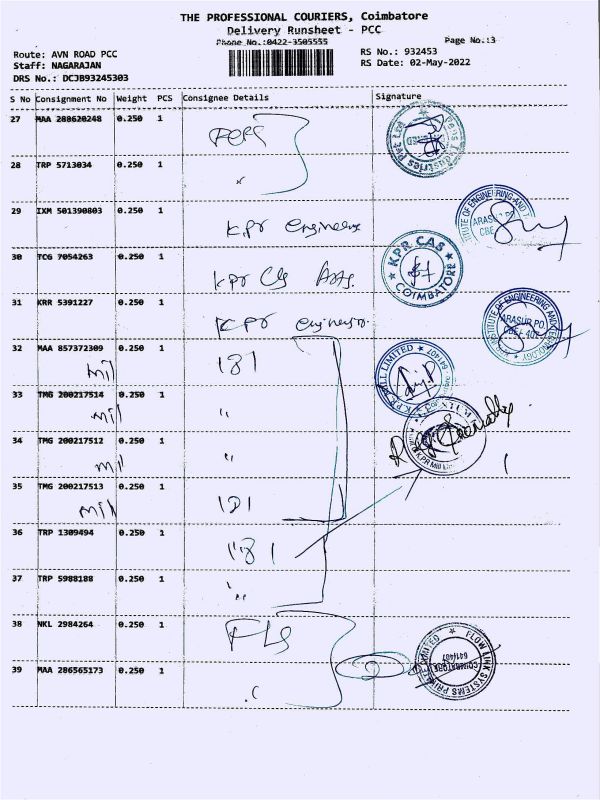 THE PROFESSIONAL COURIERS, Coimbatore
Delivery Runsheet - PCC
Phone No.:0422-3505555
Page No.:3
Route: AVN ROAD PCC
RS No.: 932453
Staff: NAGARAJAN
RS Date: 02-May-2022
DRS No.: DCJB93245303
S No Consignment No Weight PCS Consignee Details Signature
27 MAA 280620248 0.250 1
28 TRP 5713034 0.250 1 "
29 IXM 501390803 0.250 1 KPR Engineering
INSTITUTE OF ENGINEERING AND T
ARASUR PO.
30 TCG 7054263 0.250 1 KPR Clg Arts.
KPR CAS
COIMBATORE
31 KRR 5391227 0.250 1 KPR
INSTITUTE OF ENGINEERING AND TECHNOLOGY
ARASUR PO.
32 MAA 857372309 0.250 1 181
Mil
K.P.R. MILL LIMITED 641407
33 TMG 200217514 0.250 1 "
Mil
34 TMG 200217512 0.250 1 "
Mil
KPR Mill
35 TMG 200217513 0.250 1 181
Mil
36 TRP 1309494 0.250 1 181
37 TRP 5988188 0.250 1 "
38 NKL 2984264 0.250 1 FLS
FLOW LINK SYSTEMS PRIVATE LIMITED
COIMBATORE
641407
39 MAA 286565173 0.250 1